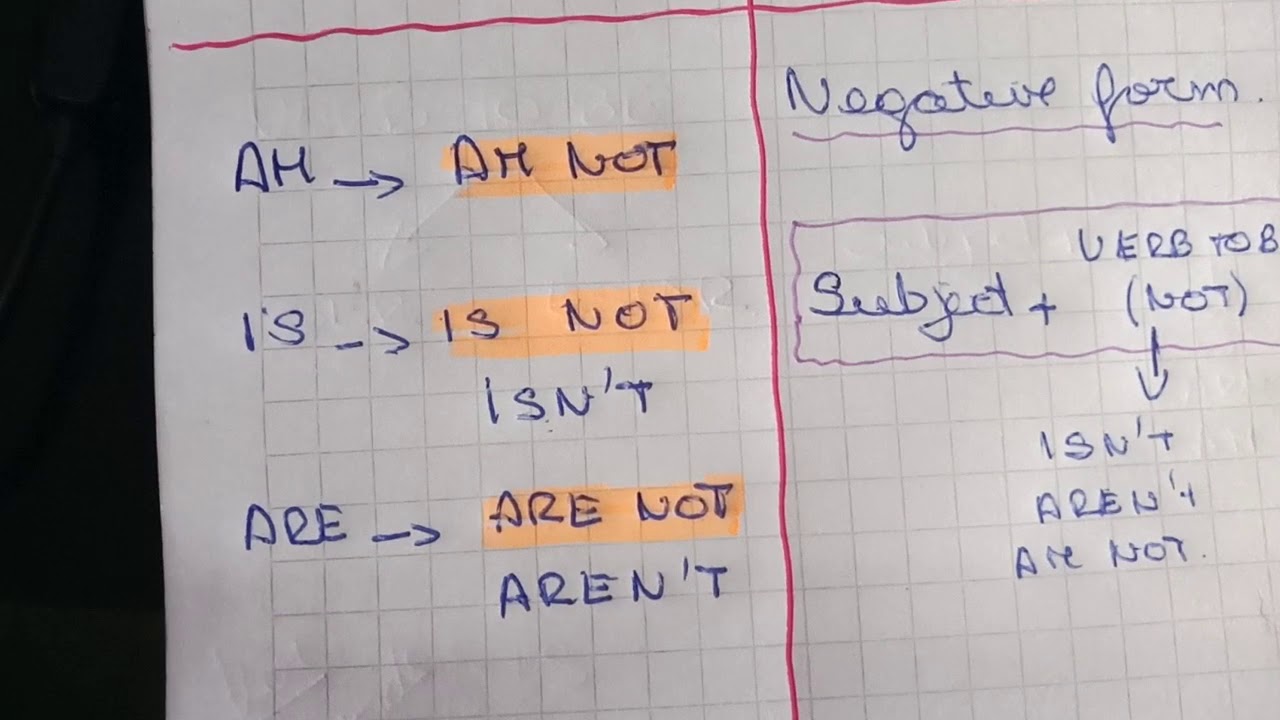 AM → AM NOT
IS → IS NOT
ISN'T
ARE → ARE NOT
AREN'T
Negative form.
VERB TO B
Subject + (NOT)
↓
ISN'T
AREN'T
AM NOT.